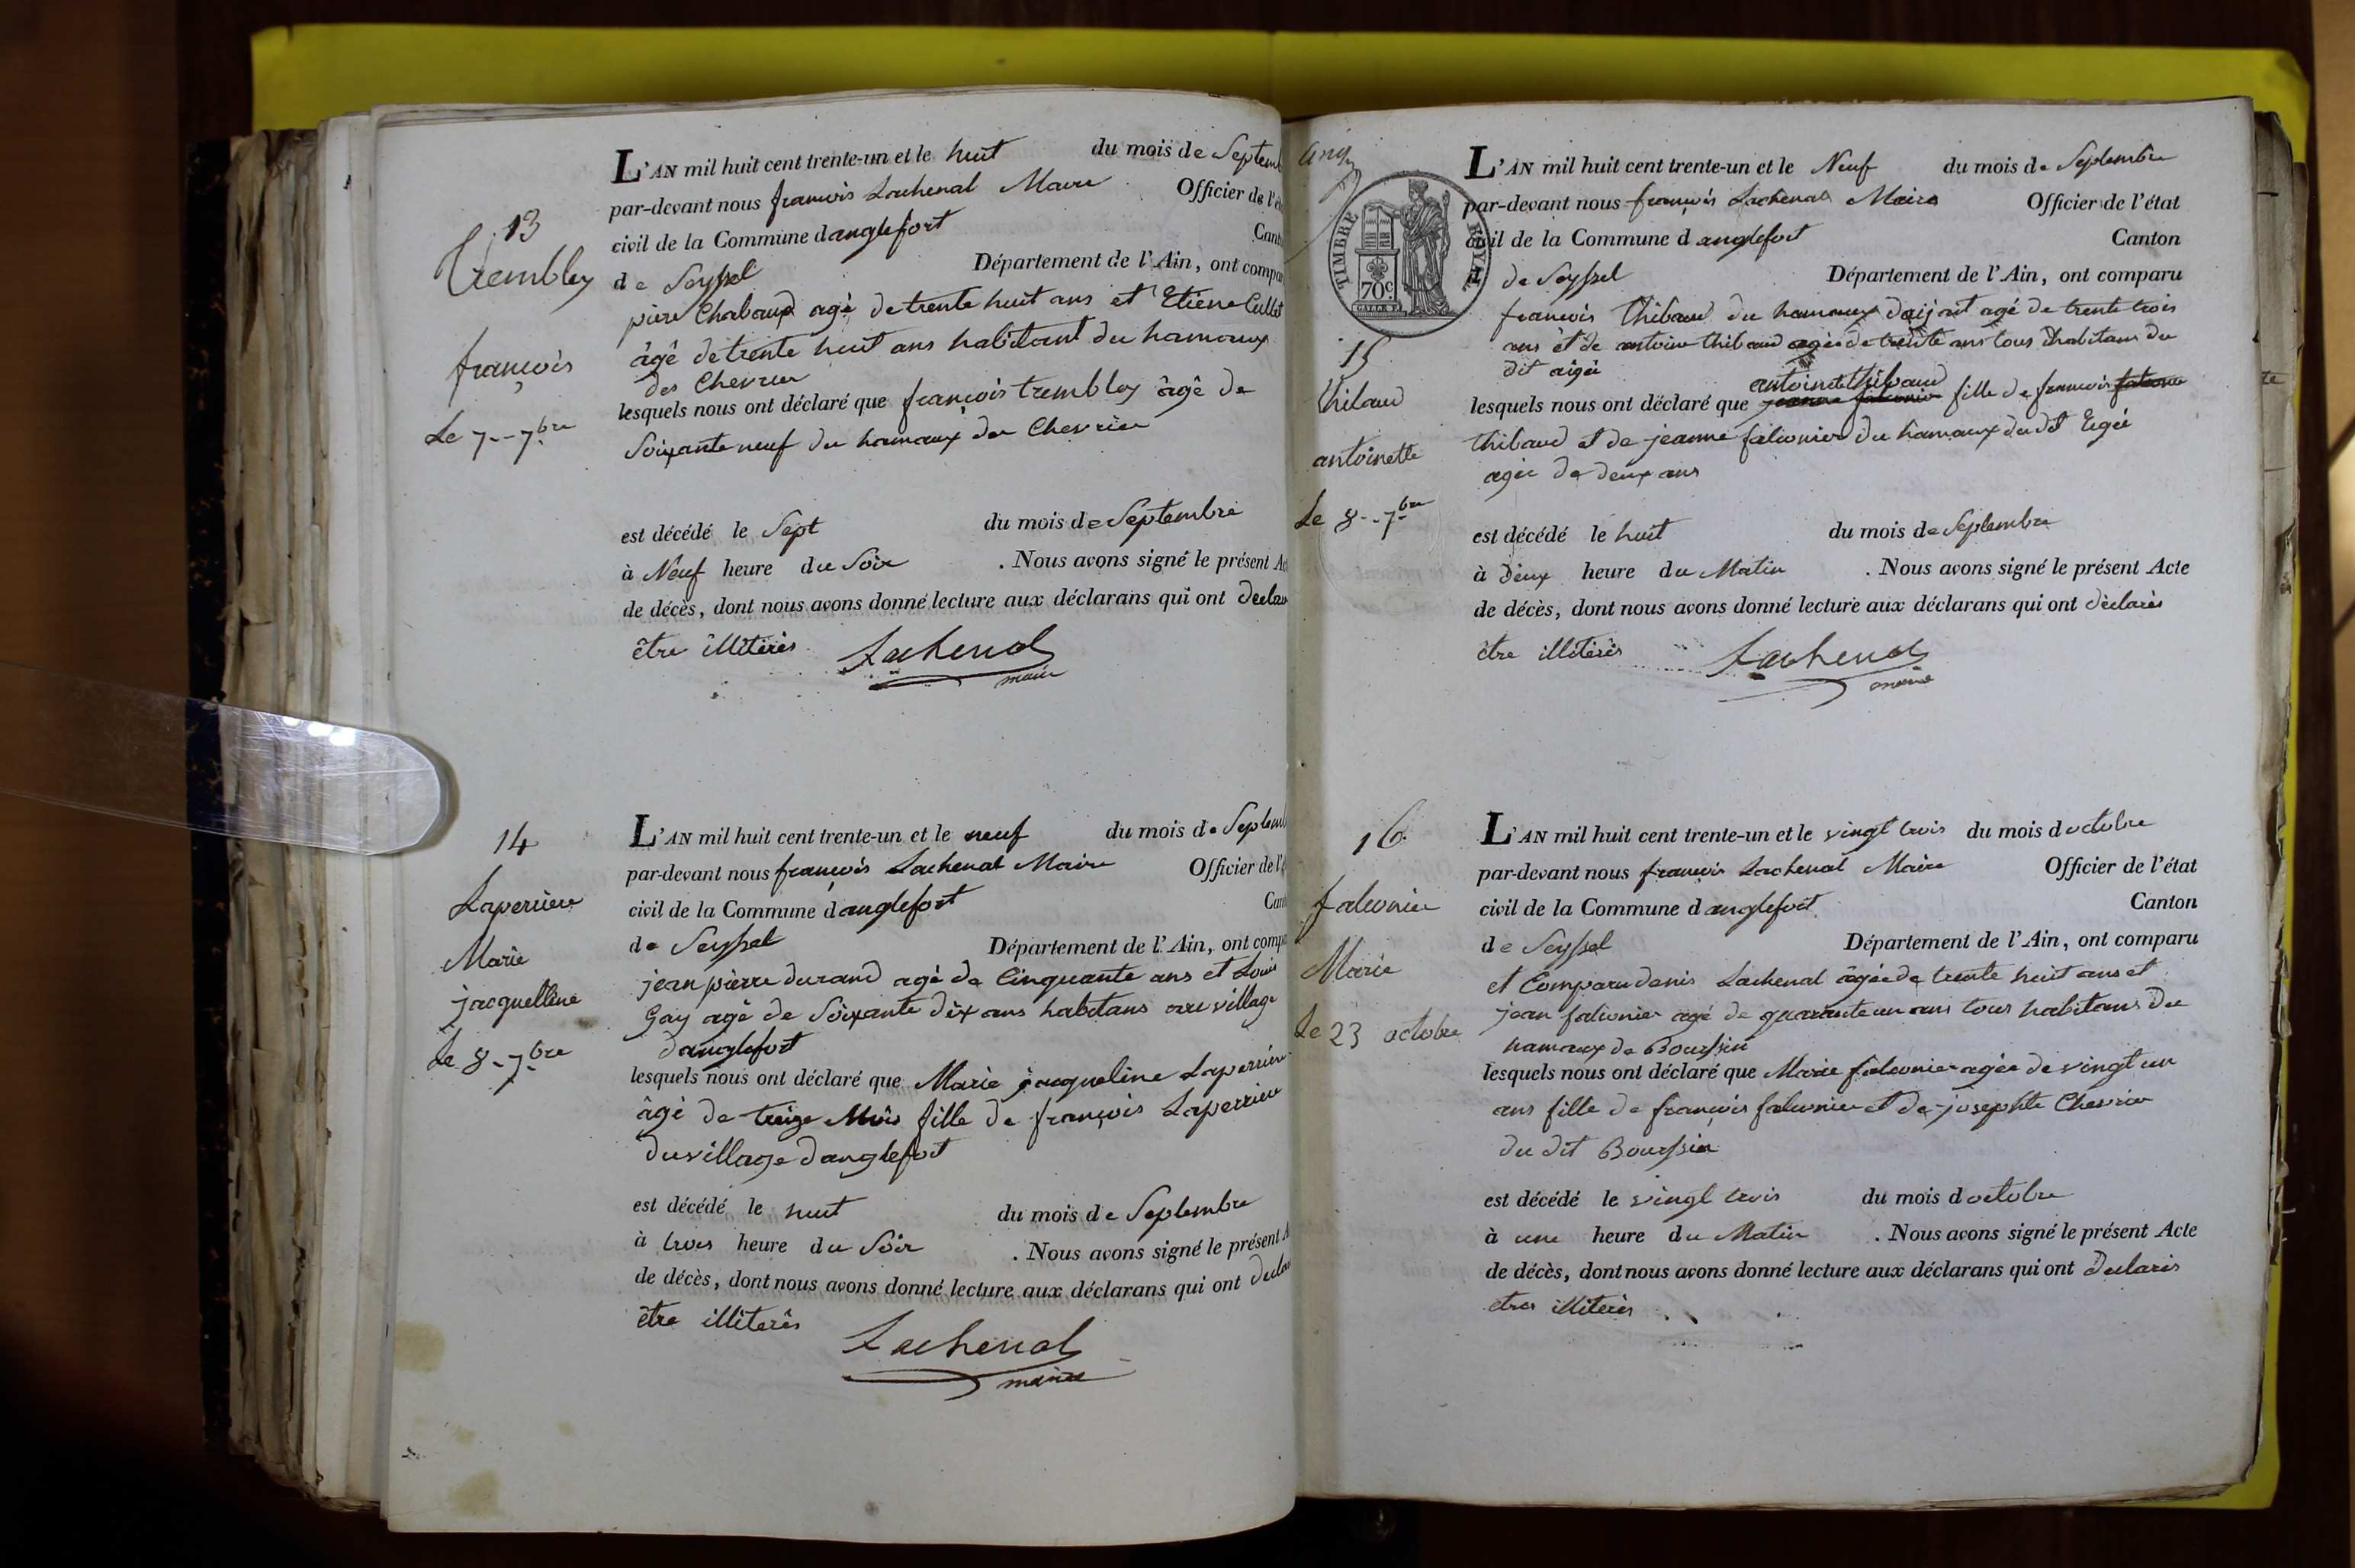 13
Trembley
françois
Le 7--7bre
L'AN mil huit cent trente-un et le huit du mois de Septemb
par-devant nous françois Lachenal Maire Officier de l'ét
civil de la Commune d anglefort Cant
de Seyssel Département de l'Ain, ont compa
pierre Chabaud agé de trente huit ans et Etiene Cullet
âgé de trente huit ans habitant du hamaux
des Chevrier
lesquels nous ont déclaré que françois trembley âgé de
Soixante neuf du hamaux des Chevrier
est décédé le Sept du mois de Septembre
à Neuf heure du Soir . Nous avons signé le présent Ac
de décès, dont nous avons donné lecture aux déclarans qui ont declar
être illiterés Lachenal
maire
14
Laperriere
Marie
jacquelline
Le 8-7bre
L'AN mil huit cent trente-un et le neuf du mois de Septemb
par-devant nous françois Lachenal Maire Officier de l'é
civil de la Commune d anglefort Cant
de Seyssel Département de l'Ain, ont compa
jean pierre durand agé de Cinquante ans et Louis
Gay agé de Soixante dix ans habitans au village
danglefort
lesquels nous ont déclaré que Marie jacqueline Laperriere
âgé de treize Mois fille de françois Laperriere
du village danglefort
est décédé le huit du mois de Septembre
à trois heure du Soir . Nous avons signé le présent A
de décès, dont nous avons donné lecture aux déclarans qui ont declar
être illiterés
Lachenal
maire
ang
TIMBRE ROYAL
70c
15
thibaud
antoinette
Le 8--7bre
L'AN mil huit cent trente-un et le Neuf du mois de Septembre
par-devant nous françois Lachenal Maire Officier de l'état
civil de la Commune d anglefort Canton
de Seyssel Département de l'Ain, ont comparu
francois thibaud du hamaux agé de trente trois
ans et de antoine thibaud agé de trente ans tous habitans du
dit
antoinette thibaud
lesquels nous ont déclaré que jeanne falconier fille de francois falconier
thibaud et de jeanne falconier du hamaux du dit
agée de deux ans
est décédé le huit du mois de Septembre
à deux heure du Matin . Nous avons signé le présent Acte
de décès, dont nous avons donné lecture aux déclarans qui ont déclarés
être illiterés Lachenal
maire
16
falconier
Marie
Le 23 octobre
L'AN mil huit cent trente-un et le vingt trois du mois d octobre
par-devant nous françois Lachenal Maire Officier de l'état
civil de la Commune d anglefort Canton
de Seyssel Département de l'Ain, ont comparu
et Comparu denis Lachenal âgée de trente huit ans et
jean falconier agé de quarante un ans tous habitans du
hamaux de Boursin
lesquels nous ont déclaré que Marie falconier agée de vingt un
ans fille de françois falconier et de josephte Chevrier
du dit Boursin
est décédé le vingt trois du mois d octobre
à une heure du Matin . Nous avons signé le présent Acte
de décès, dont nous avons donné lecture aux déclarans qui ont declarés
etres illiterés